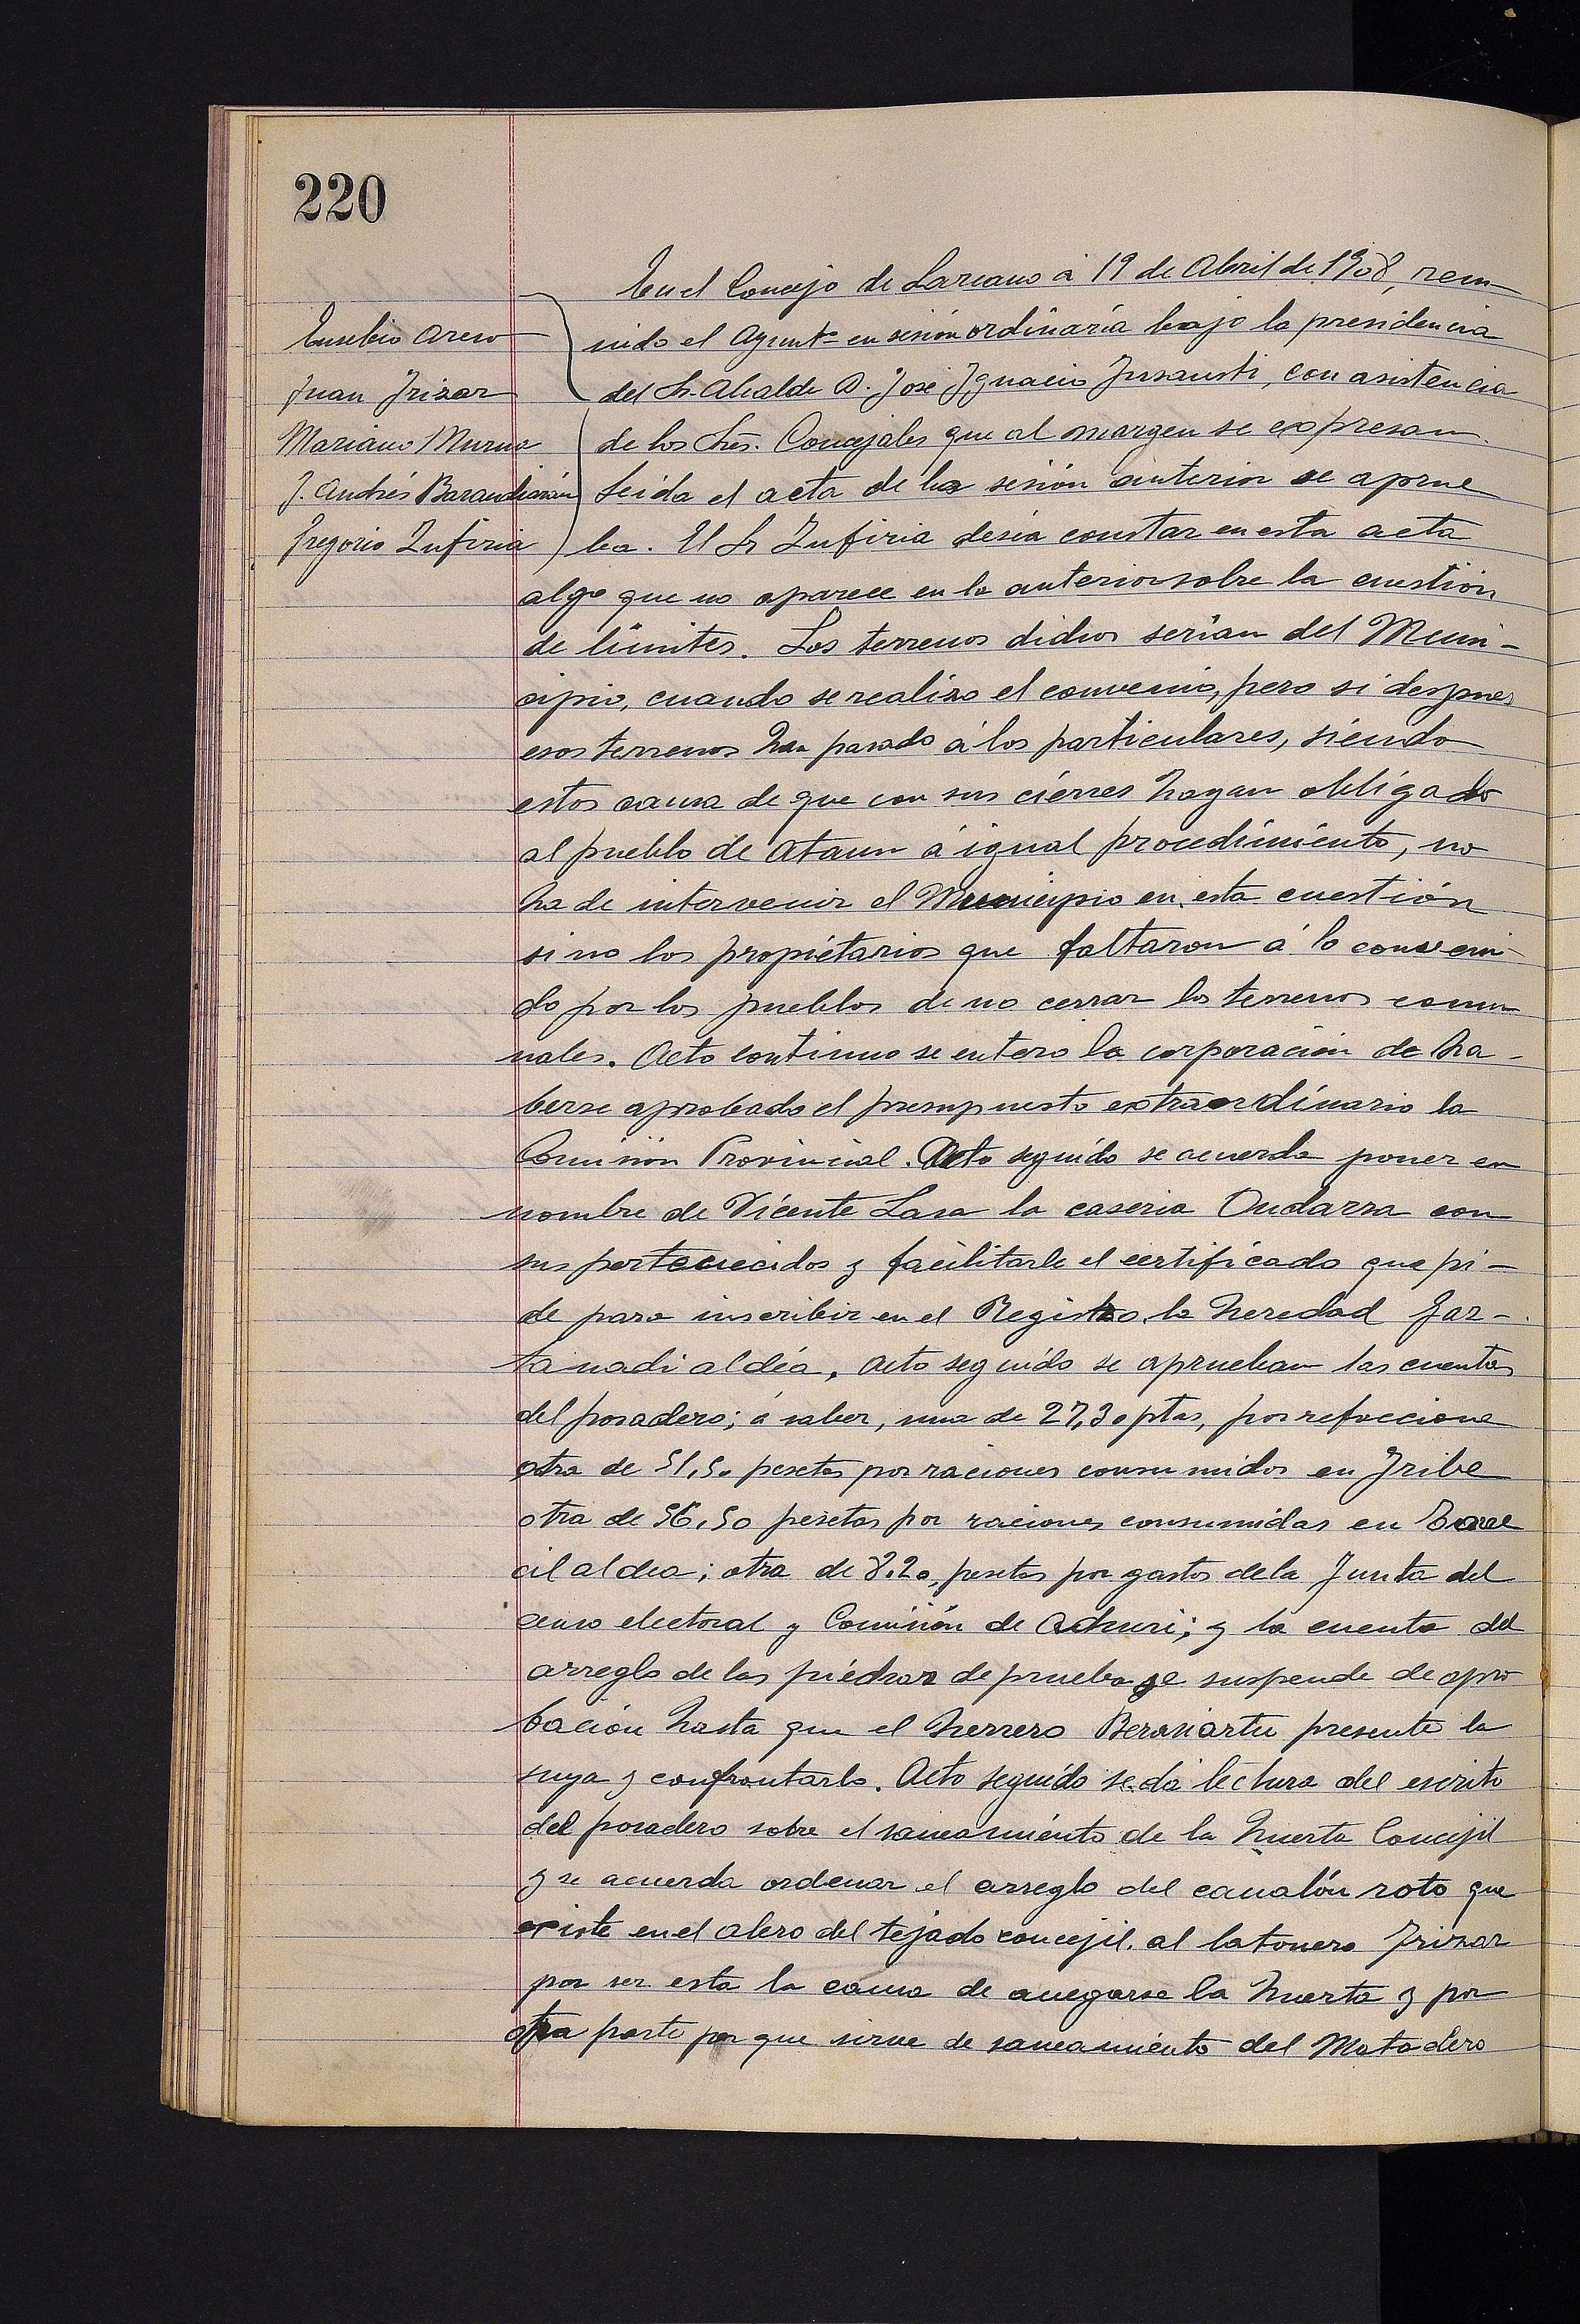 220
Eusebio Areso
Juan Irizar
Mariano Murua
J. Andrés Barandiarán
Gregorio Zufiria
En el Concejo de Lazcano á 19 de Abril de 1908, reu-
nido el Ayunto en sesión ordinaria bajo la presidencia
del Sr. Alcalde D. José Ignacio Insausti, con asistencia
de los Sres. Concejales que al margen se expresan.
Leida el acta de la sesión anterior se aprue
ba. El Sr Zufiria deséa constar en esta acta
algo que no aparece en la anterior sobre la cuestión
de limites. Los terrenos dichos serian del Muni-
cipio, cuando se realizo el convenio, pero si despues
esos terrenos han pasado á los particulares, siendo
estos causa de que con sus ciérres hayan obligado
al pueblo de Ataun á igual procedimiento, no
ha de intervenir el Municipio en esta cuestión
si no los propietarios que faltaron á lo conveni-
do por los pueblos de no cerrar los terrenos comu
nales. Acto continuo se entero la corporación de ha-
berse aprobado el presupuesto extraordinario la
Comisión Provincial. Acto seguido se acuerda poner en
nombre de Vicente Lasa la caseria Oudarza con
sus pertenecidos y facilitarle el certificado que pi-
de para inscribir en el Registro la heredad Jaz-
tanadi aldéa. Acto seguido se aprueban las cuentas
del posadero; á saber, una de 27,30 ptas, por refaccione
otra de 51,50 pesetas por raciones consumidos en Iribe
otra de 56,50 pesetas por raciones consumidas en
cil aldea; otra de 8.20, pesetas por gastos de la Junta del
censo electoral y Comisión de Achuri; y la cuenta del
arreglo de las piédras de prueba se suspende de apro
bación hasta que el herrero Berasiartu presente la
suya y confrontarla. Acto seguido se da lectura del escrito
del posadero sobre el saneamiénto de la huerta Concejil
y se acuerda ordenar el arreglo del canalón roto que
existe en el alero del tejado concejil. al latonero Irizar
por ser esta la causa de anegarse la huerta y por
otra parte por que sirve de saneamiénto del Matadero